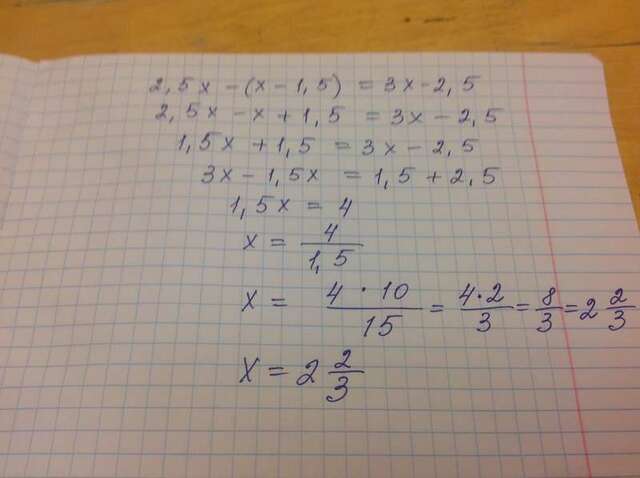 2,5x - (x - 1,5) = 3x - 2,5
2,5x - x + 1,5 = 3x - 2,5
1,5x + 1,5 = 3x - 2,5
3x - 1,5x = 1,5 + 2,5
1,5x = 4
x = 4/1,5
x = 4 · 10/15 = 4·2/3 = 8/3 = 2 2/3
x = 2 2/3